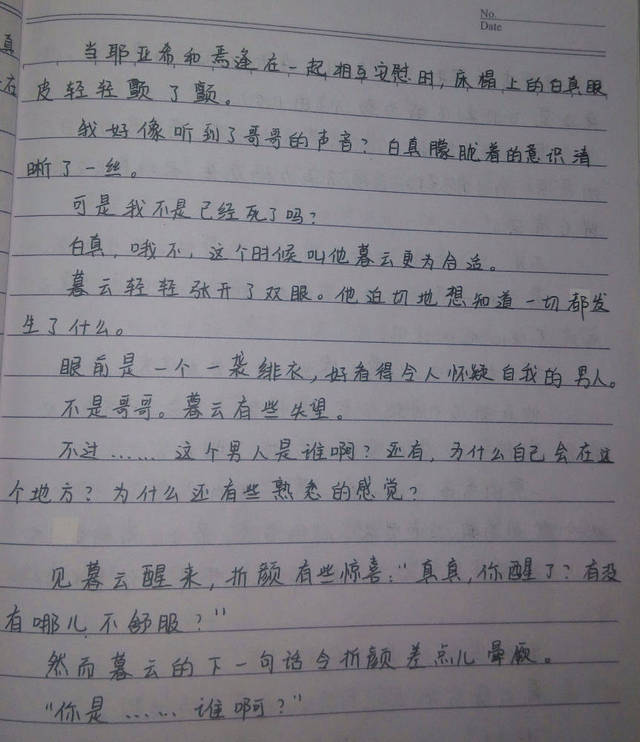 No.
Date
当耶亚希和焉逢在一起相互安慰时，床榻上的白真眼
皮轻轻颤了颤。
我好像听到了哥哥的声音？白真朦胧着的意识清
晰了一丝。
可是我不是已经死了吗？
白真，哦不，这个时候叫他暮云更为合适。
暮云轻轻张开了双眼。他迫切地想知道一切都发
生了什么。
眼前是一个一袭绯衣，好看得令人怀疑自我的男人。
不是哥哥。暮云有些失望。
不过……这个男人是谁啊？还有，为什么自己会在这
个地方？为什么还有些熟悉的感觉？
见暮云醒来，折颜有些惊喜：“真真，你醒了？有没
有哪儿不舒服？”
然而暮云的下一句话令折颜差点儿晕厥。
“你是……谁啊？”
真
在